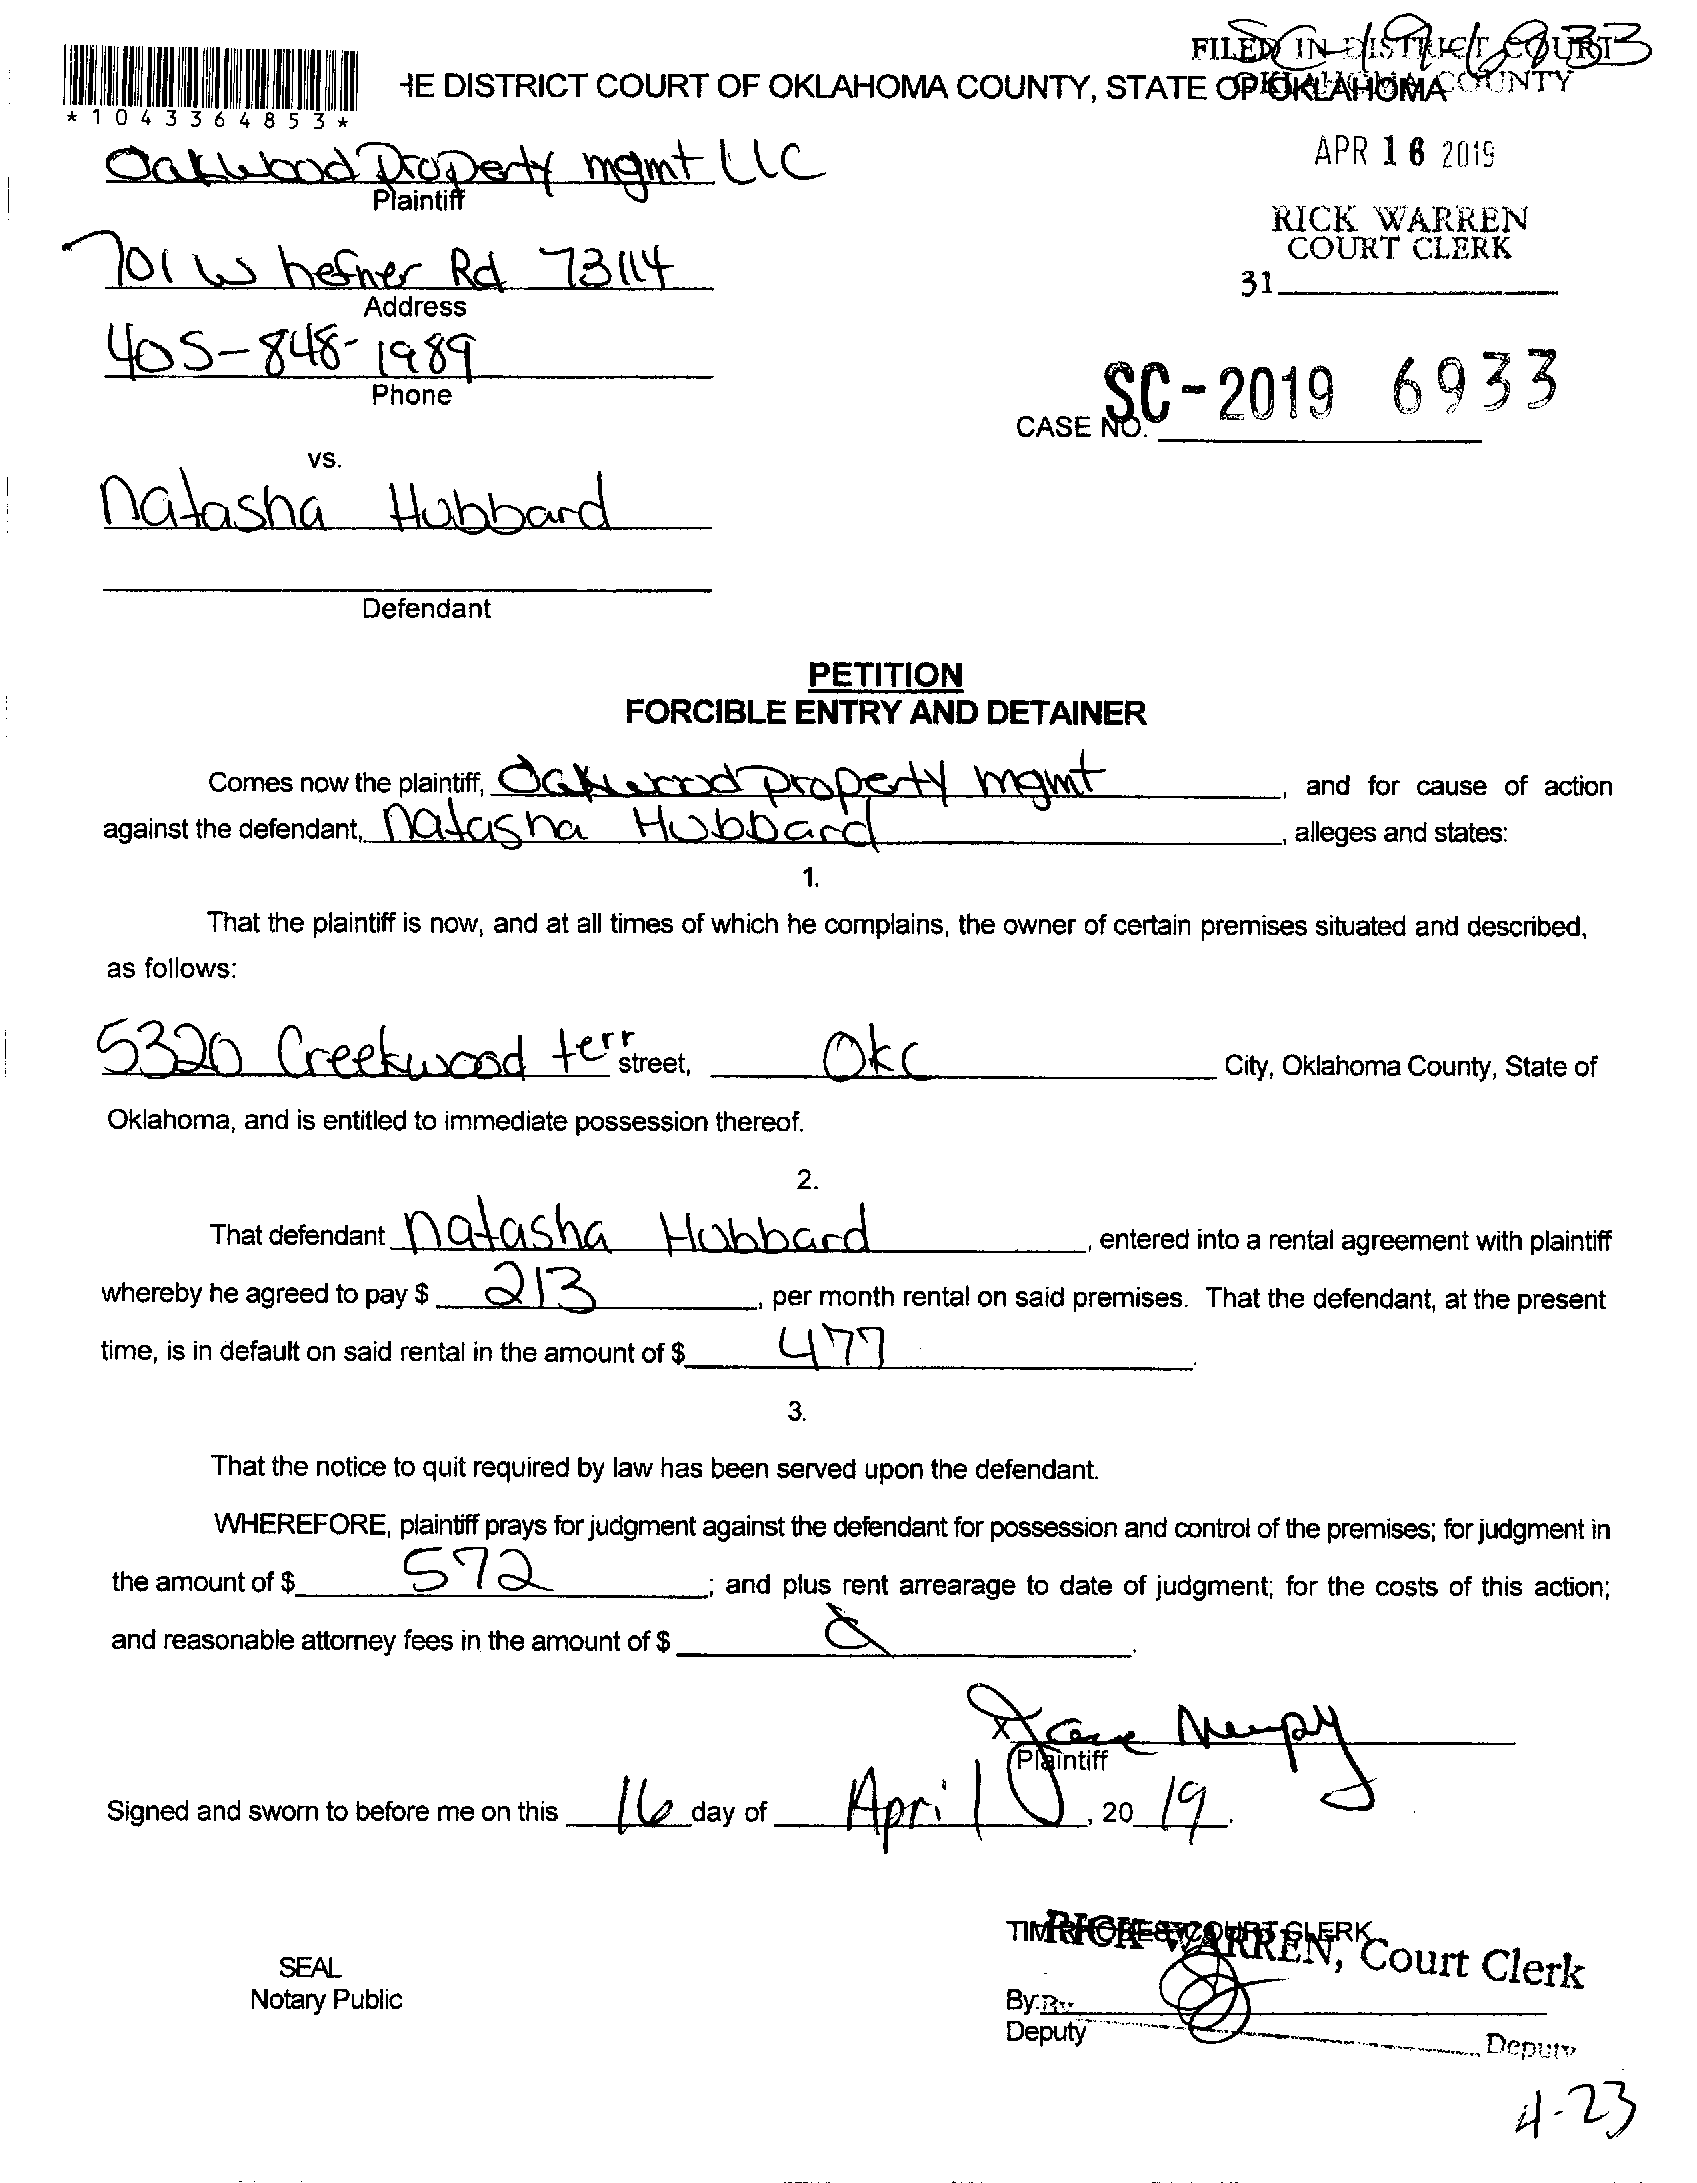 SC-19-6933
FILED IN DISTRICT COURT
OKLAHOMA COUNTY
HE DISTRICT COURT OF OKLAHOMA COUNTY, STATE OF OKLAHOMA
*1043364853*
APR 16 2019
Oakwood Property mgmt LLC
Plaintiff
RICK WARREN
COURT CLERK
31
701 W hefner Rd 73114
Address
405-848-1989
Phone
SC-2019 6933
CASE NO.
vs.
Natasha Hubbard
Defendant
PETITION
FORCIBLE ENTRY AND DETAINER
Comes now the plaintiff, Oakwood property mgmt, and for cause of action
against the defendant, Natasha Hubbard, alleges and states:
1.
That the plaintiff is now, and at all times of which he complains, the owner of certain premises situated and described,
as follows:
5320 Creekwood terr street, OKC City, Oklahoma County, State of
Oklahoma, and is entitled to immediate possession thereof.
2.
That defendant Natasha Hubbard, entered into a rental agreement with plaintiff
whereby he agreed to pay $ 213, per month rental on said premises. That the defendant, at the present
time, is in default on said rental in the amount of $ 477.
3.
That the notice to quit required by law has been served upon the defendant.
WHEREFORE, plaintiff prays for judgment against the defendant for possession and control of the premises; for judgment in
the amount of $ 572; and plus rent arrearage to date of judgment; for the costs of this action;
and reasonable attorney fees in the amount of $
x
Plaintiff
Signed and sworn to before me on this 16 day of April, 20 19.
RICK WARREN, Court Clerk
COURT CLERK
SEAL
Notary Public
By: By
Deputy
Deputy
4-23